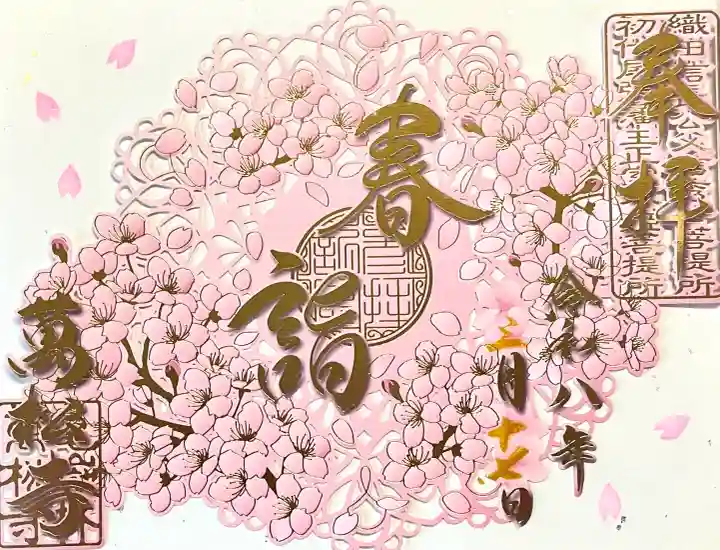 奉拝
織田信公父菩提所
初代藩主正菩提所
春詣
令和八年
三月十七日
萬松寺